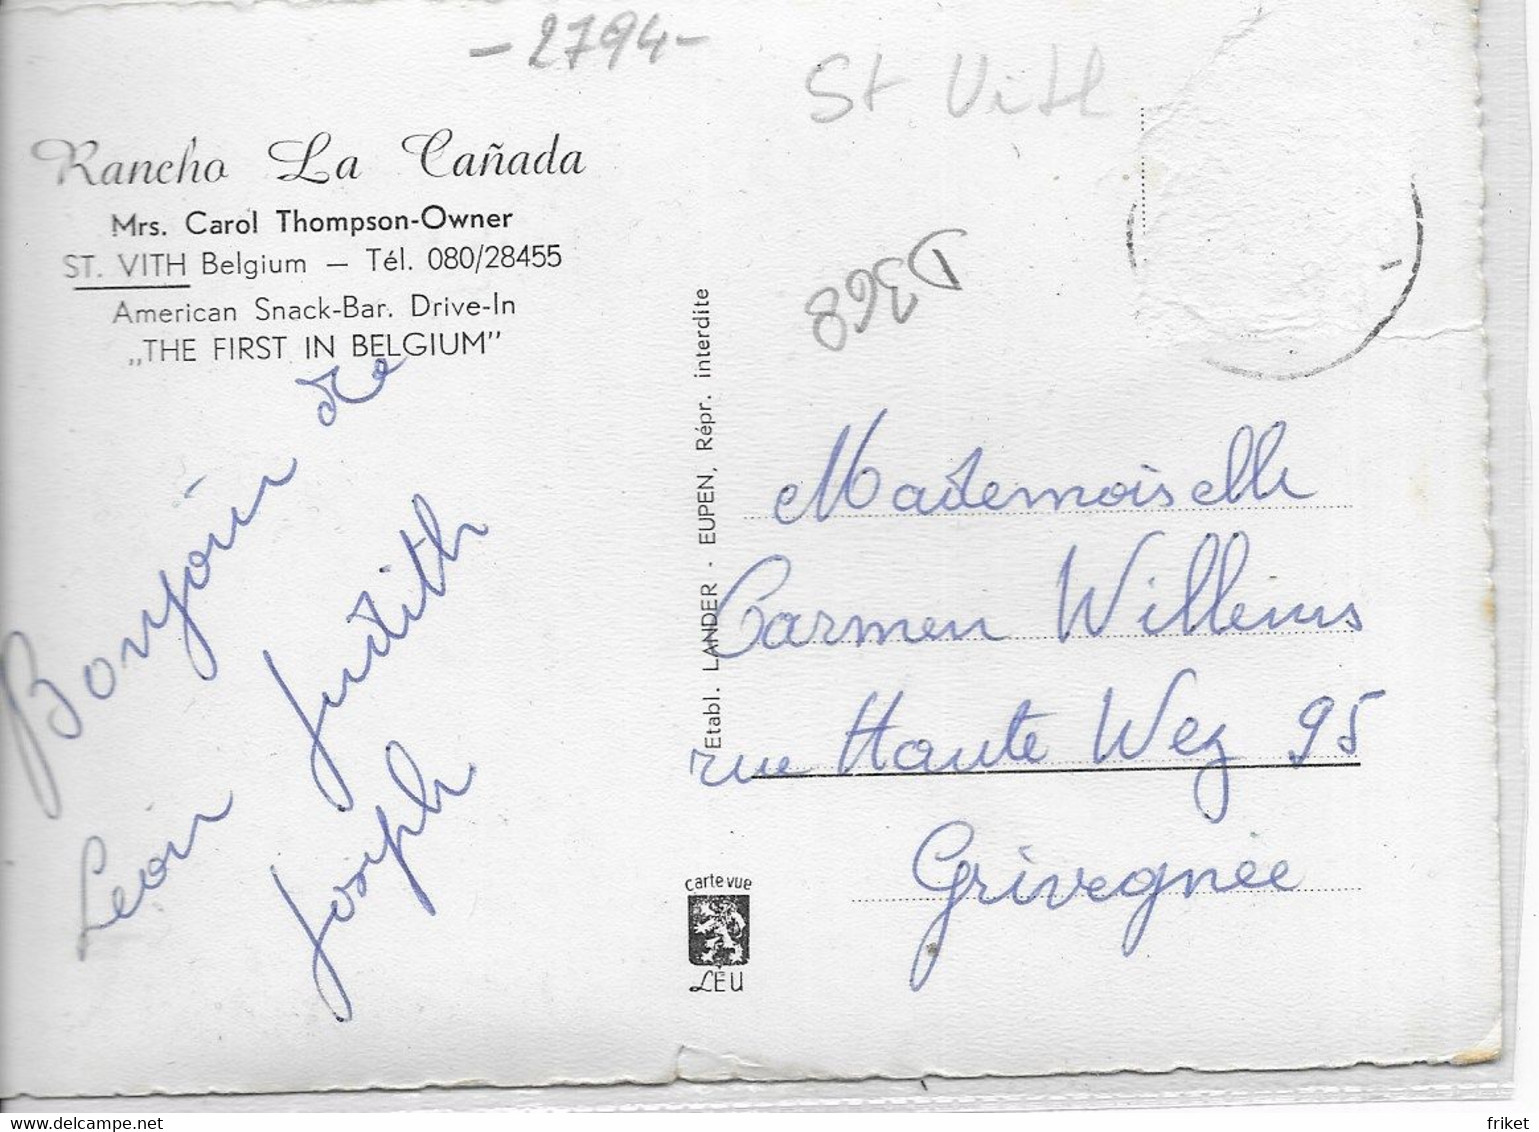 -2794-
St Vith
Rancho La Cañada
Mrs. Carol Thompson-Owner
ST. VITH Belgium — Tél. 080/28455
American Snack-Bar. Drive-In
„THE FIRST IN BELGIUM”
D368
Bonjour de
Léon Judith
Joseph
Etabl. LANDER · EUPEN, Répr. interdite
Mademoiselle
Carmen Willems
rue Haute Wez 95
Grivegnée
carte vue
LEU
delcampe.net
friket